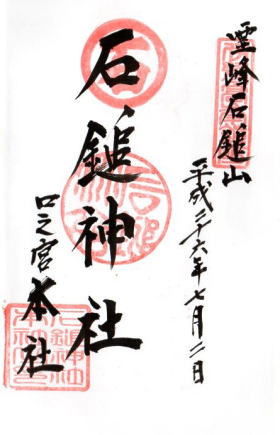 霊峰石鎚山
平成二十六年七月二日
石鎚神社
口之宮本社